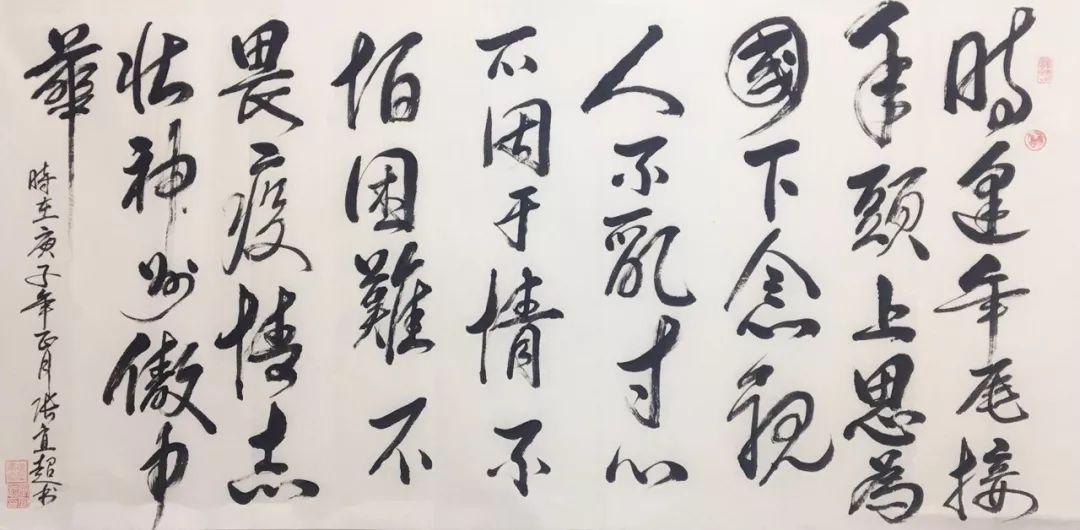 時逢年尾接
年頭上思為
國下念親
人不亂寸心
不因于情不
怕困難不
畏疫情志
壯神州傲中
華
時在庚子年正月张宜超书